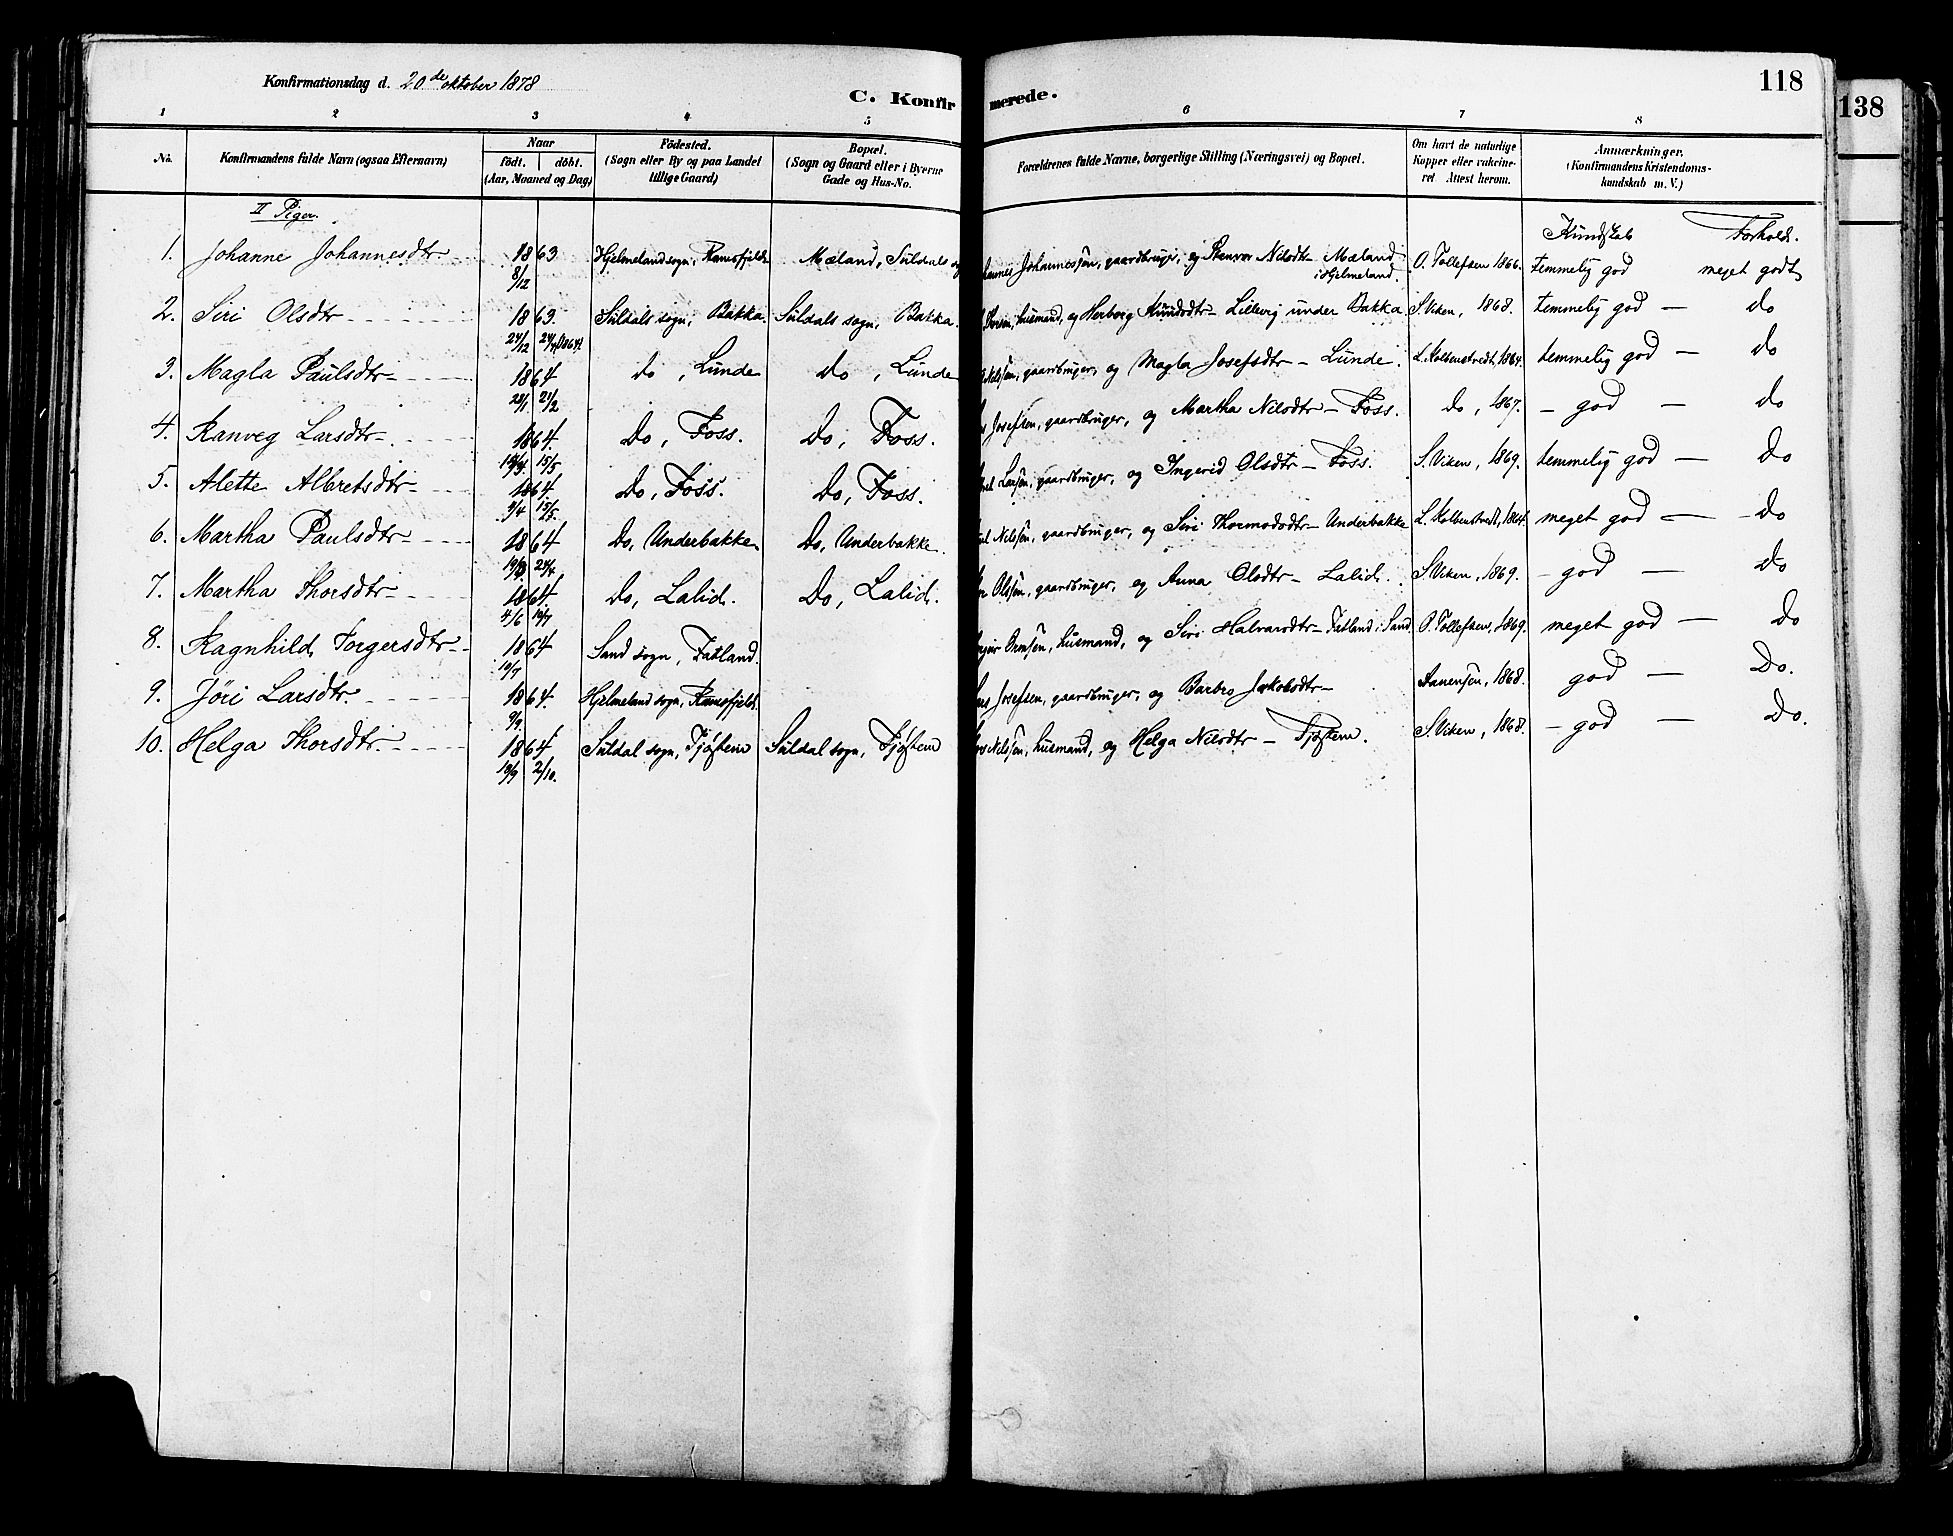 118
138
Konfirmationsdag d. 20de oktober 1878
C. Konfirmerede.
1 2 3 4 5 6 7 8
No. Konfirmandens fulde Navn (ogsaa Efternavn) Naar födt. döbt. (Aar, Moaned og Dag) Födested. (Sogn eller By og paa Landet tillige Gaard) Bopæl. (Sogn og Gaard eller i Byerne Gade og Hus-No. Forældrenes fulde Navne, borgerlige Stilling (Næringsvei) og Bopæl. Om havt de naturlige Kopper eller vakcineret Attest herom. Anmærkninger, (Konfirmandens Kristendomskundskab m. V.)
II Piger. Kundskab Forhold.
1. Johanne Johannesdtr 1863 8/12 Hjelmeland sogn, Ramsfjeld Mæland, Suldals Johannessen, gaardbruger, og Stenvor Nilsdtr Mæland i Hjelmeland. O. Tollefsen 1866. temmelig god meget godt
2. Siri Olsdtr 1863. 24/12 1864. Suldals sogn, Bakka. Suldals sogn, Bakka. husmand, og Herborg Lillevig under Bakka S. Viken, 1868. temmelig god — do
3. Magla Paulsdtr 1864 28/1 21/2 do, Lunde do, Lunde gaardbruger, og Magla Josefsdtr — Lunde. 1864. temmelig god — do
4. Ranveg Larsdtr 1864. 15/5 Do, Foss. Do, Foss. Josefsen, gaardbruger, og Martha Nilsdtr — Foss. do, 1867. — god — do
5. Alette Albretsdtr 1864. 9/4 15/5 Do, Foss. Do, Foss. Larsen, gaardbruger, og Ingerid Olsdtr — Foss. S. Viken, 1869. temmelig god — do
6. Martha Paulsdtr 1864 24/4 Do, Underbakke Do, Underbakke. Nilssen, gaardbruger, og Siri Thormodsdtr — Underbakke 1864. meget god — do
7. Martha Thorsdtr 1864 4/6 Do, Lalid. Do, Lalid. Olssen, gaardbruger, og Anna Olsdtr — Lalid. S. Viken, 1869. — god — do
8. Ragnhild Torgersdtr 1864 10/7 Sand sogn, Fatland. Ormsen, husmand, og Siri Halvarsdtr — Fatland i Sand O. Tollefsen, 1869. meget god — Do
9. Jöri Larsdtr. 1864. 9/9 Hjelmeland sogn, Ramsfjeld. Josefsen, gaardbruger, og Barbro Jakobsdtr — Aanensen, 1868. god — Do.
10. Helga Thorsdtr. 1864 19/9 2/10. Suldal sogn, Tjöstem Suldal sogn, Tjöstem Nilssen, husmand, og Helga Nilsdtr — Tjöstem. S. Viken, 1868. — god — Do.